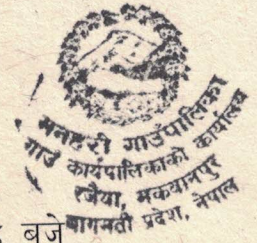 मनहरी गाउँपालिका
गाउँ कार्यपालिकाको कार्यालय
रजैया, मकवानपुर
बागमती प्रदेश, नेपाल
बजे